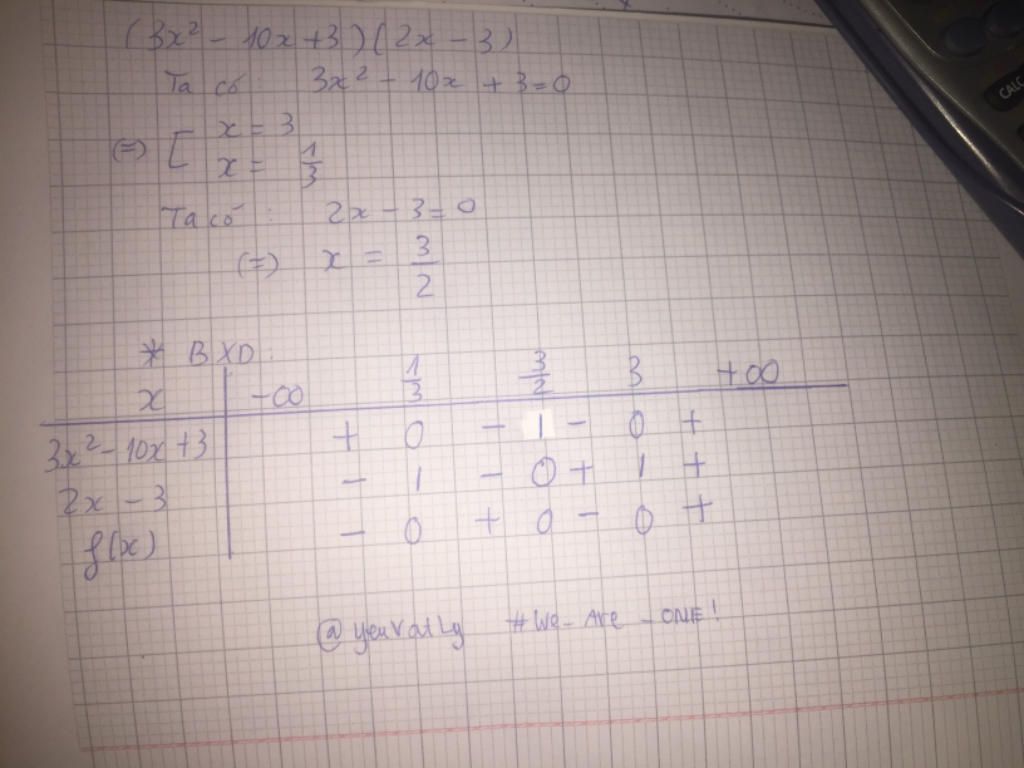 (3x² - 10x + 3)(2x - 3)
Ta có: 3x² - 10x + 3 = 0
(=) [ x = 3
x = 1/3
Ta có: 2x - 3 = 0
(=) x = 3/2
* BXD:
x -∞ 1/3 3/2 3 +∞
3x² - 10x + 3 + 0 - | - 0 +
2x - 3 - | - 0 + | +
f(x) - 0 + 0 - 0 +
#We-Are-ONE!
CALC